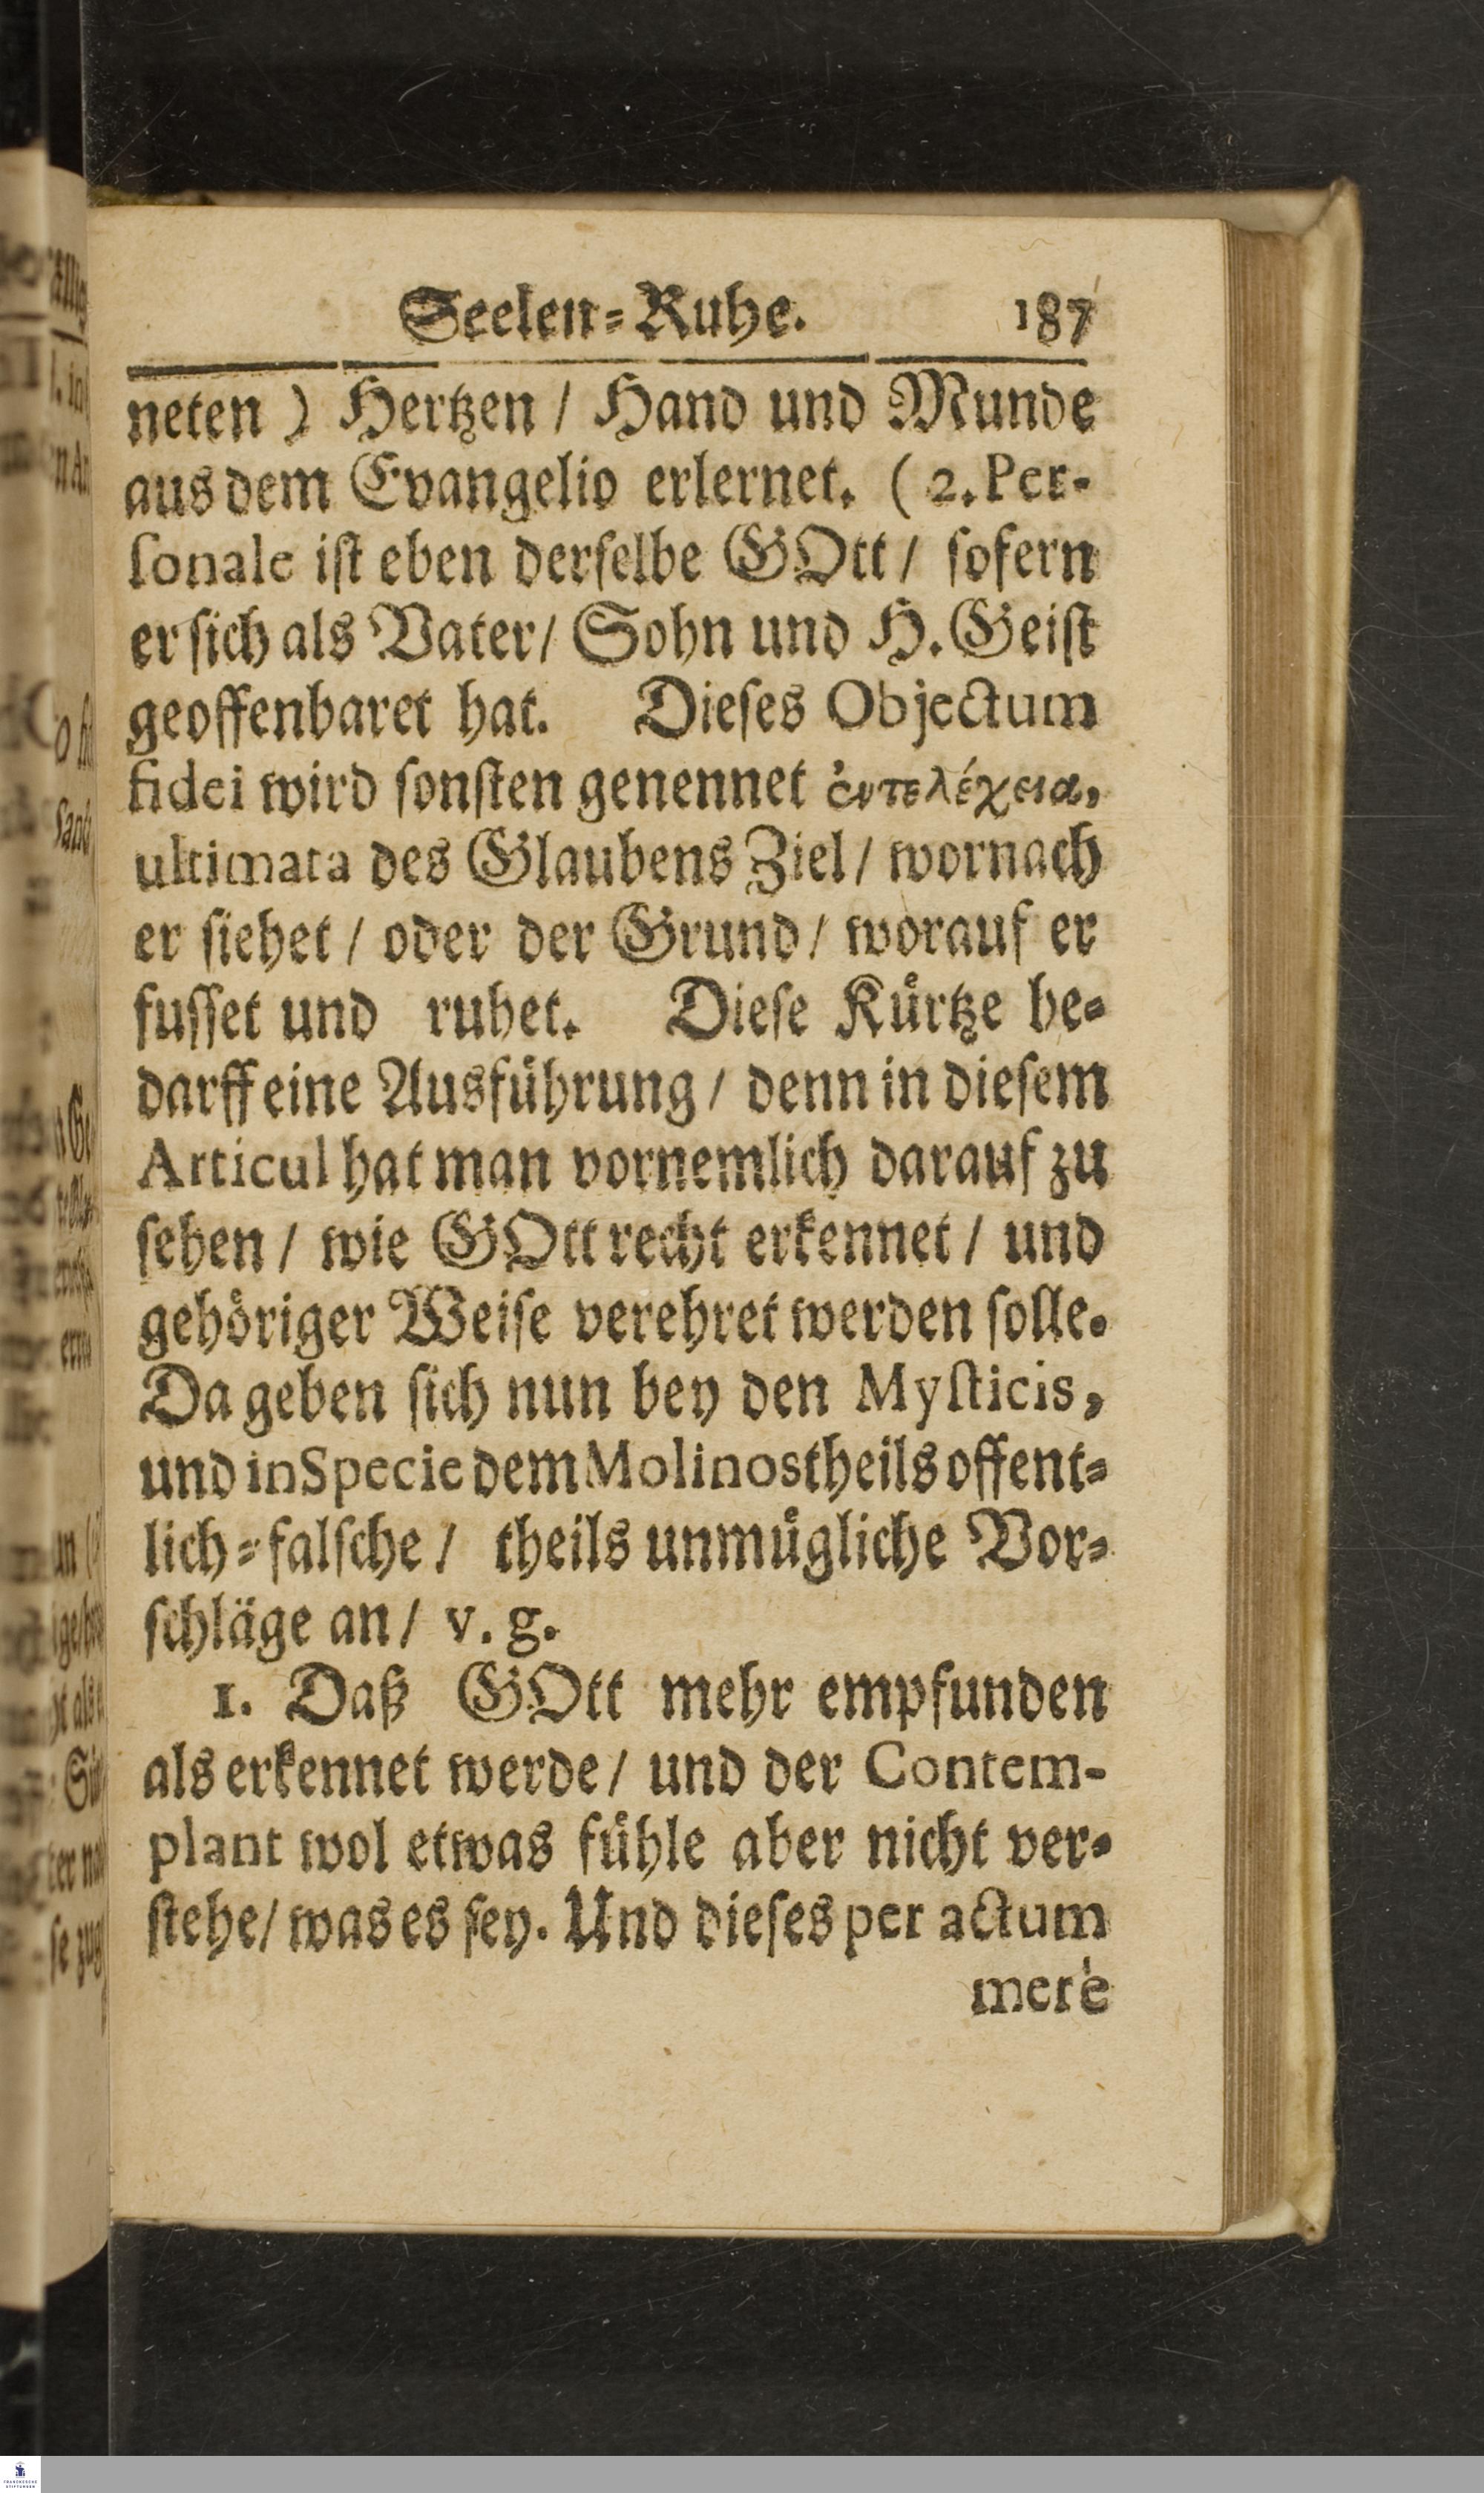 Seelen-Ruhe. 187
neten) Hertzen / Hand und Munde
aus dem Evangelio erlernet. (2. Per-
sonale ist eben derselbe GOtt / sofern
er sich als Vater / Sohn und H. Geist
geoffenbaret hat. Dieses Objectum
fidei wird sonsten genennet ἐντελέχεια,
ultimata des Glaubens Ziel / wornach
er siehet / oder der Grund / worauf er
fusset und ruhet. Diese Kürtze be-
darff eine Ausführung / denn in diesem
Articul hat man vornemlich darauf zu
sehen / wie GOtt recht erkennet / und
gehöriger Weise verehret werden solle.
Da geben sich nun bey den Mysticis,
und in Specie dem Molinos theils offent-
lich-falsche / theils unmügliche Vor-
schläge an / v. g.
1. Daß GOtt mehr empfunden
als erkennet werde / und der Contem-
plant wol etwas fühle aber nicht ver-
stehe / was es sey. Und dieses per actum
merè